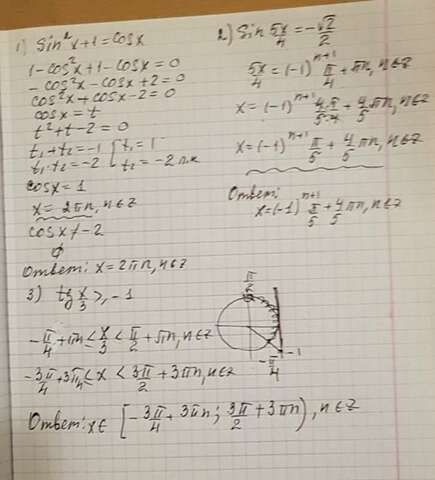 1) Sin²x+1=cosx
1-cos²x+1-cosx=0
-cos²x-cosx+2=0
cos²x+cosx-2=0
cosx=t
t²+t-2=0
t₁+t₂=-1 [t₁=1
t₁·t₂=-2 [t₂=-2 п.к
cosx=1
x=2πn, n∈z
cosx≠-2
∅
Ответ: x=2πn, n∈z
2) Sin 5x/4 = -√2/2
5x/4 = (-1)ⁿ⁺¹ π/4 + πn, n∈z
x=(-1)ⁿ⁺¹ 4·π/5·4 + 4/5 πn, n∈z
x=(-1)ⁿ⁺¹ π/5 + 4/5 πn, n∈z
Ответ:
x=(-1)ⁿ⁺¹ π/5 + 4/5 πn, n∈z
3) tg x/3 ≥ -1
-π/4 + πn ≤ x/3 < π/2 + πn, n∈z
-3π/4 + 3πn ≤ x < 3π/2 + 3πn, n∈z
π/2
-1
-π/4
Ответ: x∈ [-3π/4 + 3πn; 3π/2 + 3πn), n∈z